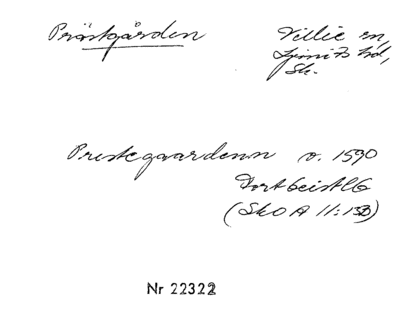 Prästgården Villie sn,
Ljunits hd,
Sk.
Prestegaardenn o. 1590
(SkOA II:132)
Nr 22322